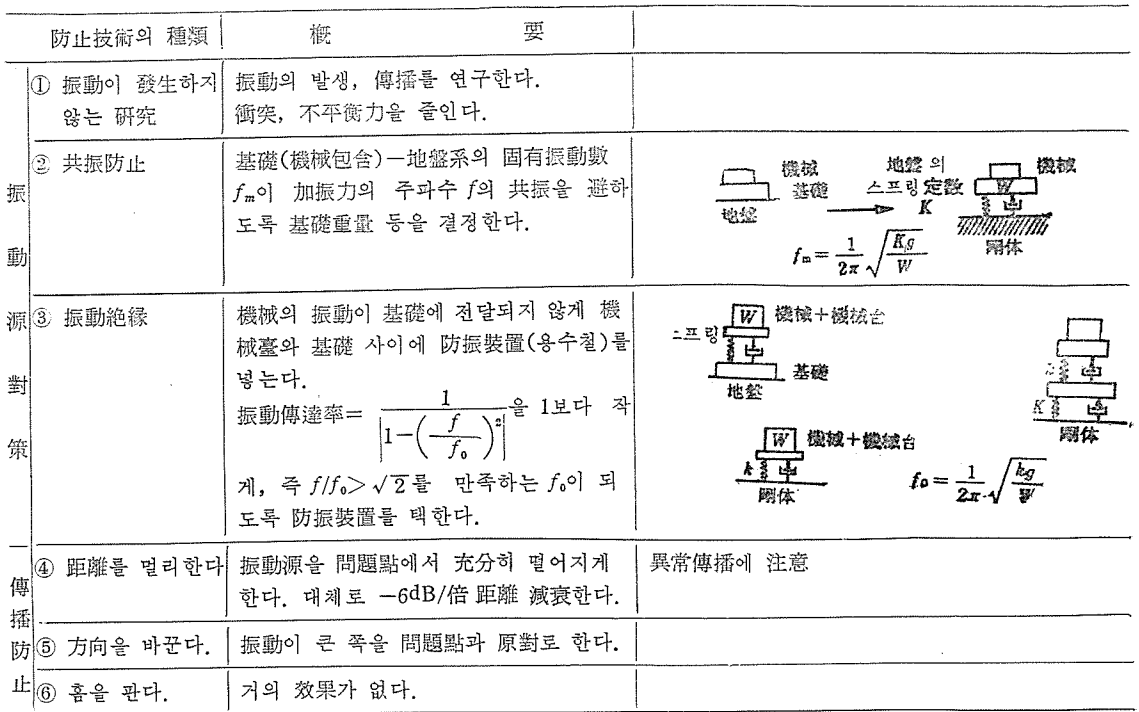 防止技術의 種類 槪 要
① 振動이 發生하지 않는 硏究
振動의 발생, 傳播를 연구한다.
衝突, 不平衡力을 줄인다.
振動源對策
② 共振防止
基礎(機械包含)−地盤系의 固有振動數
fm이 加振力의 주파수 f의 共振을 避하
도록 基礎重量 등을 결정한다.
機械
基礎
地盤
地盤의
스프링定数
K
機械
W
剛体
fm = 1/2π √(Kg/W)
③ 振動絶緣
機械의 振動이 基礎에 전달되지 않게 機
械臺와 基礎 사이에 防振裝置(용수철)를
넣는다.
振動傳達率= 1/|1−(f/f₀)²| 을 1보다 작
게, 즉 f/f₀>√2를 만족하는 f₀이 되
도록 防振裝置를 택한다.
W 機械+機械台
스프링
基礎
地盤
K
剛体
W 機械+機械台
k
剛体
f₀ = 1/2π·√(kg/W)
傳播防止
④ 距離를 멀리한다
振動源을 問題點에서 充分히 멀어지게
한다. 대체로 −6dB/倍 距離 減衰한다.
異常傳播에 注意
⑤ 方向을 바꾼다.
振動이 큰 쪽을 問題點과 原對로 한다.
⑥ 홈을 판다.
거의 效果가 없다.